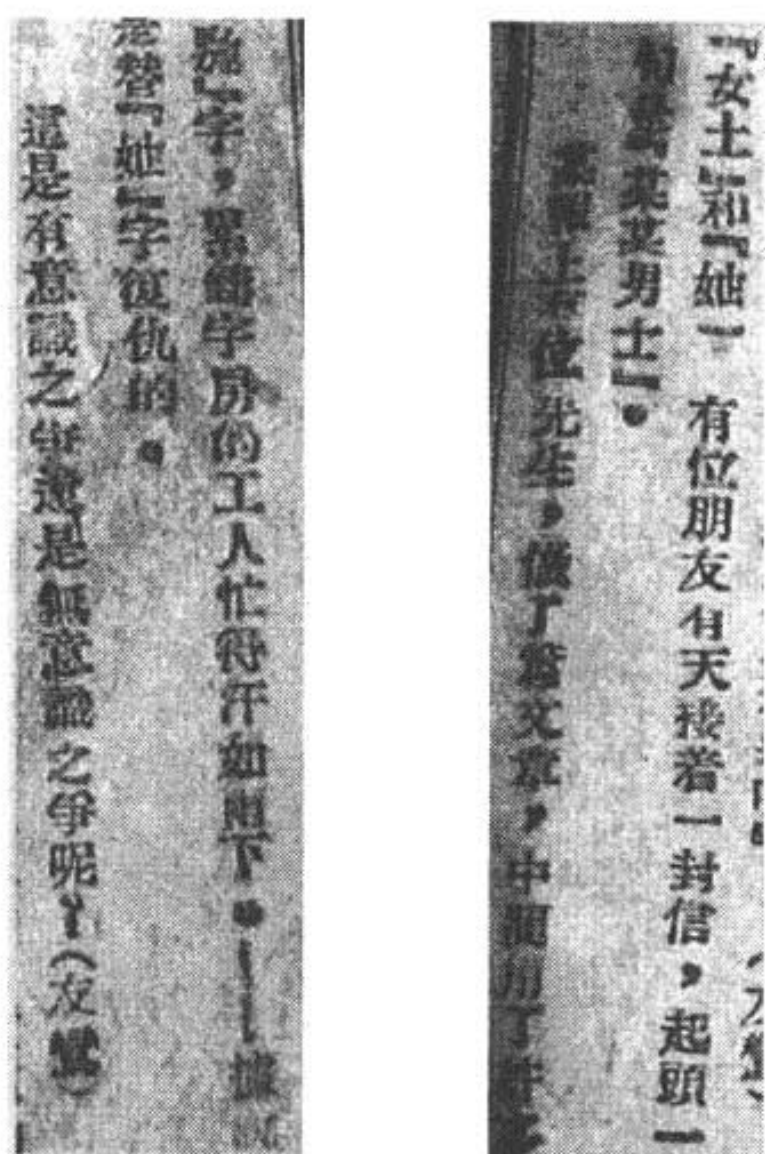 『女士』和『她』 有位朋友有天接着一封信,起頭一
某某男士』。
上有位先生,做了篇文章,中間用了許多
』字,累鑄字房的工人忙得汗如雨下。——據說
是替『她』字復仇的。
這是有意識之爭還是無意識之爭呢!(友鸞)